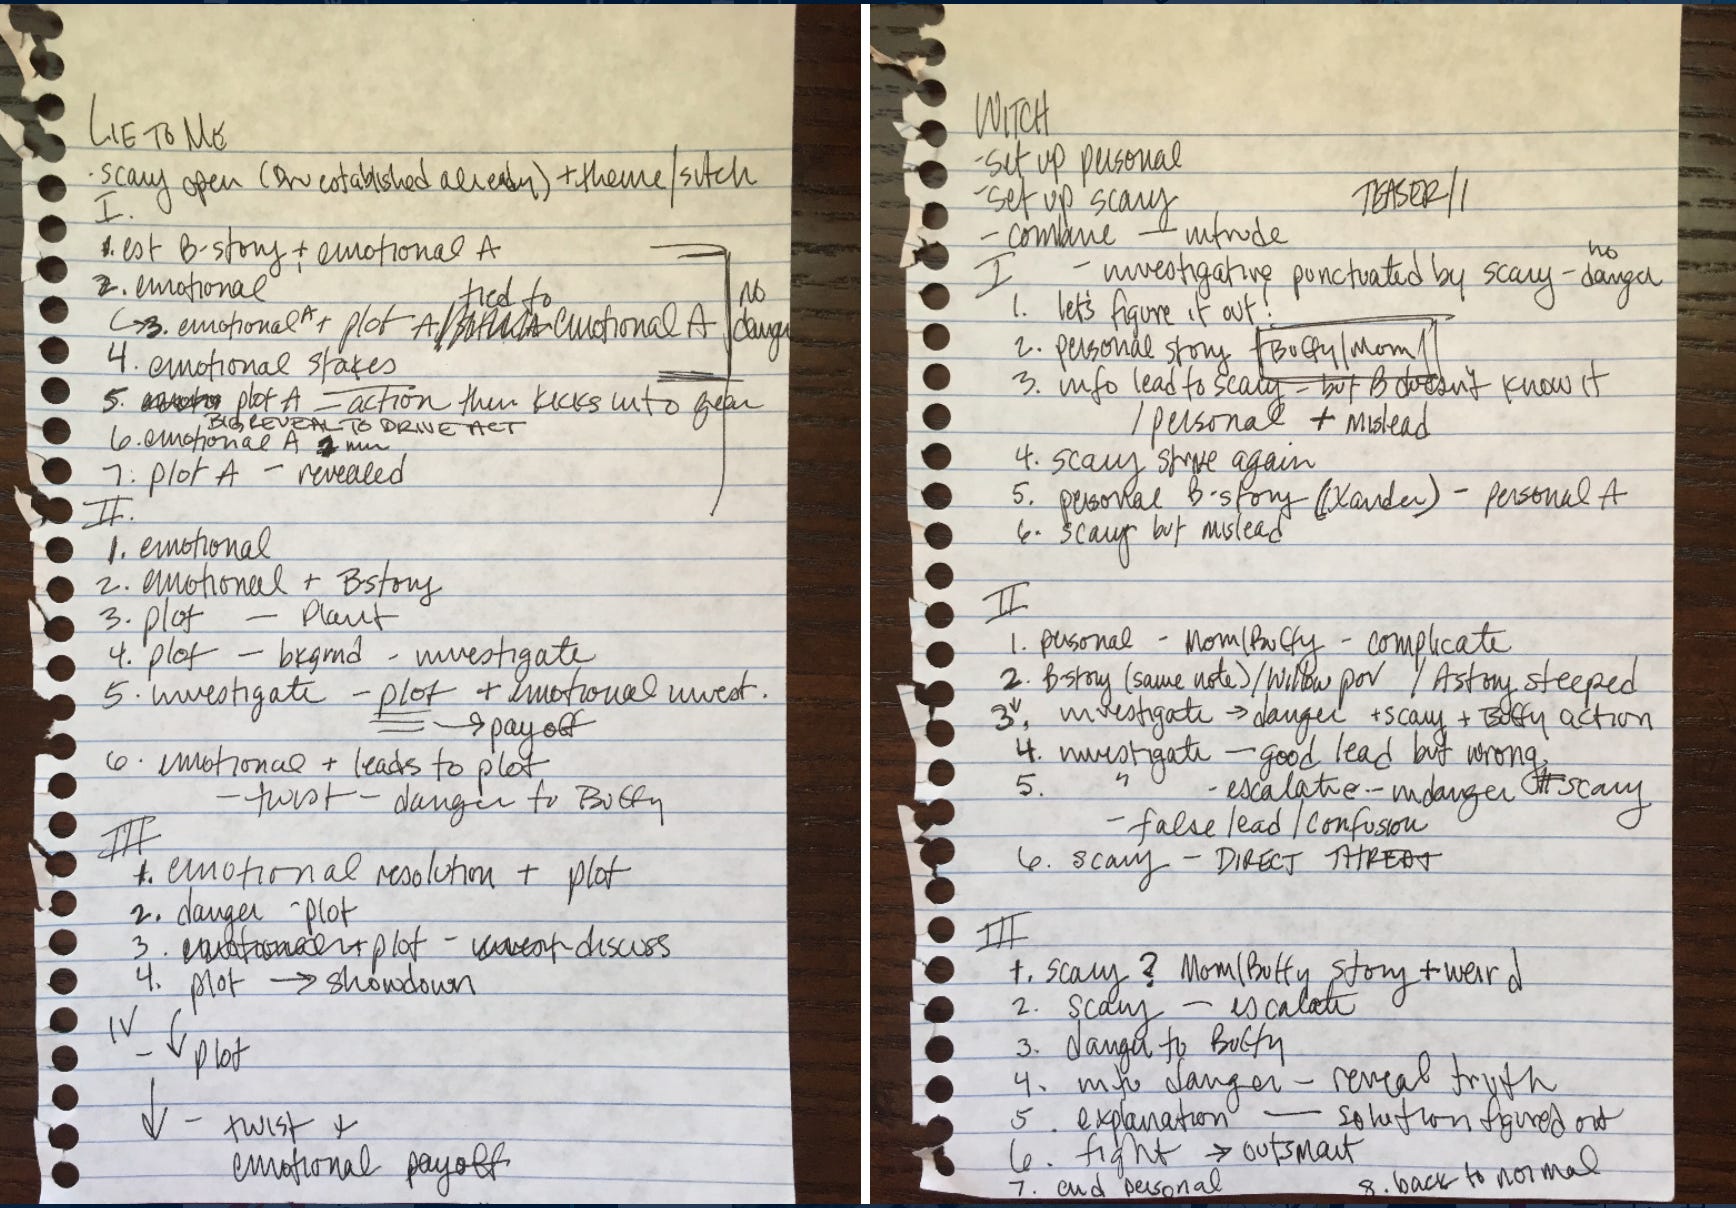 LIE TO ME
- scary open (Dru established already) + theme/sitch
I.
1. est B-story + emotional A
2. emotional
no
tied to
↳3. emotional A + plot A/ emotional A
danger
4. emotional stakes
5. plot A = action then kicks into gear
BIG REVEAL TO DRIVE ACT
6. emotional A 2 min
7. plot A - revealed
II.
1. emotional
2. emotional + B story
3. plot — Plant
4. plot - bkgrnd - investigate
5. investigate - plot + emotional invest.
→ payoff
6. emotional + leads to plot
- twist - danger to Buffy
III
1. emotional resolution + plot
2. danger - plot
3. emotional + plot - discuss
4. plot → showdown
IV
- plot
- twist +
emotional payoff
WITCH
- set up personal
- set up scary
TEASER/1
- combine - intrude
no
I - investigative punctuated by scary - danger
1. let's figure it out!
2. personal story Buffy/Mom
3. info lead to scary - but B doesn't know it
/personal + mislead
4. scary strike again
5. personal B-story (Xander) - personal A
6. scary but mislead
II
1. personal - Mom/Buffy - complicate
2. B-story (same note)/Willow pov / A story steeped
3. investigate → danger + scary + Buffy action
4. investigate - good lead but wrong
5. " - escalate - indanger scary
- false lead/confusion
6. scary - DIRECT THREAT
III
1. scary ? Mom/Buffy story + weird
2. scary - escalate
3. danger to Buffy
4. info danger - reveal truth
5. explanation — solution figured out
6. fight → outsmart
7. end personal
8. back to normal